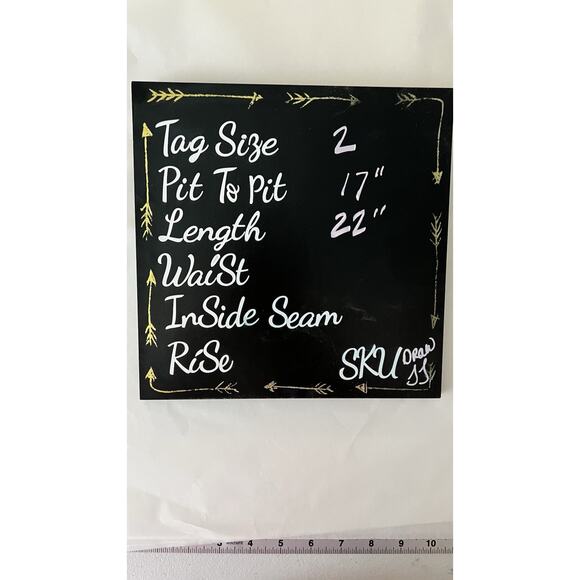 Tag Size 2
Pit To Pit 17"
Length 22"
WaiSt
InSide Seam
RiSe SKU Draw
JJ
3 4 5 6 7 8 9 10